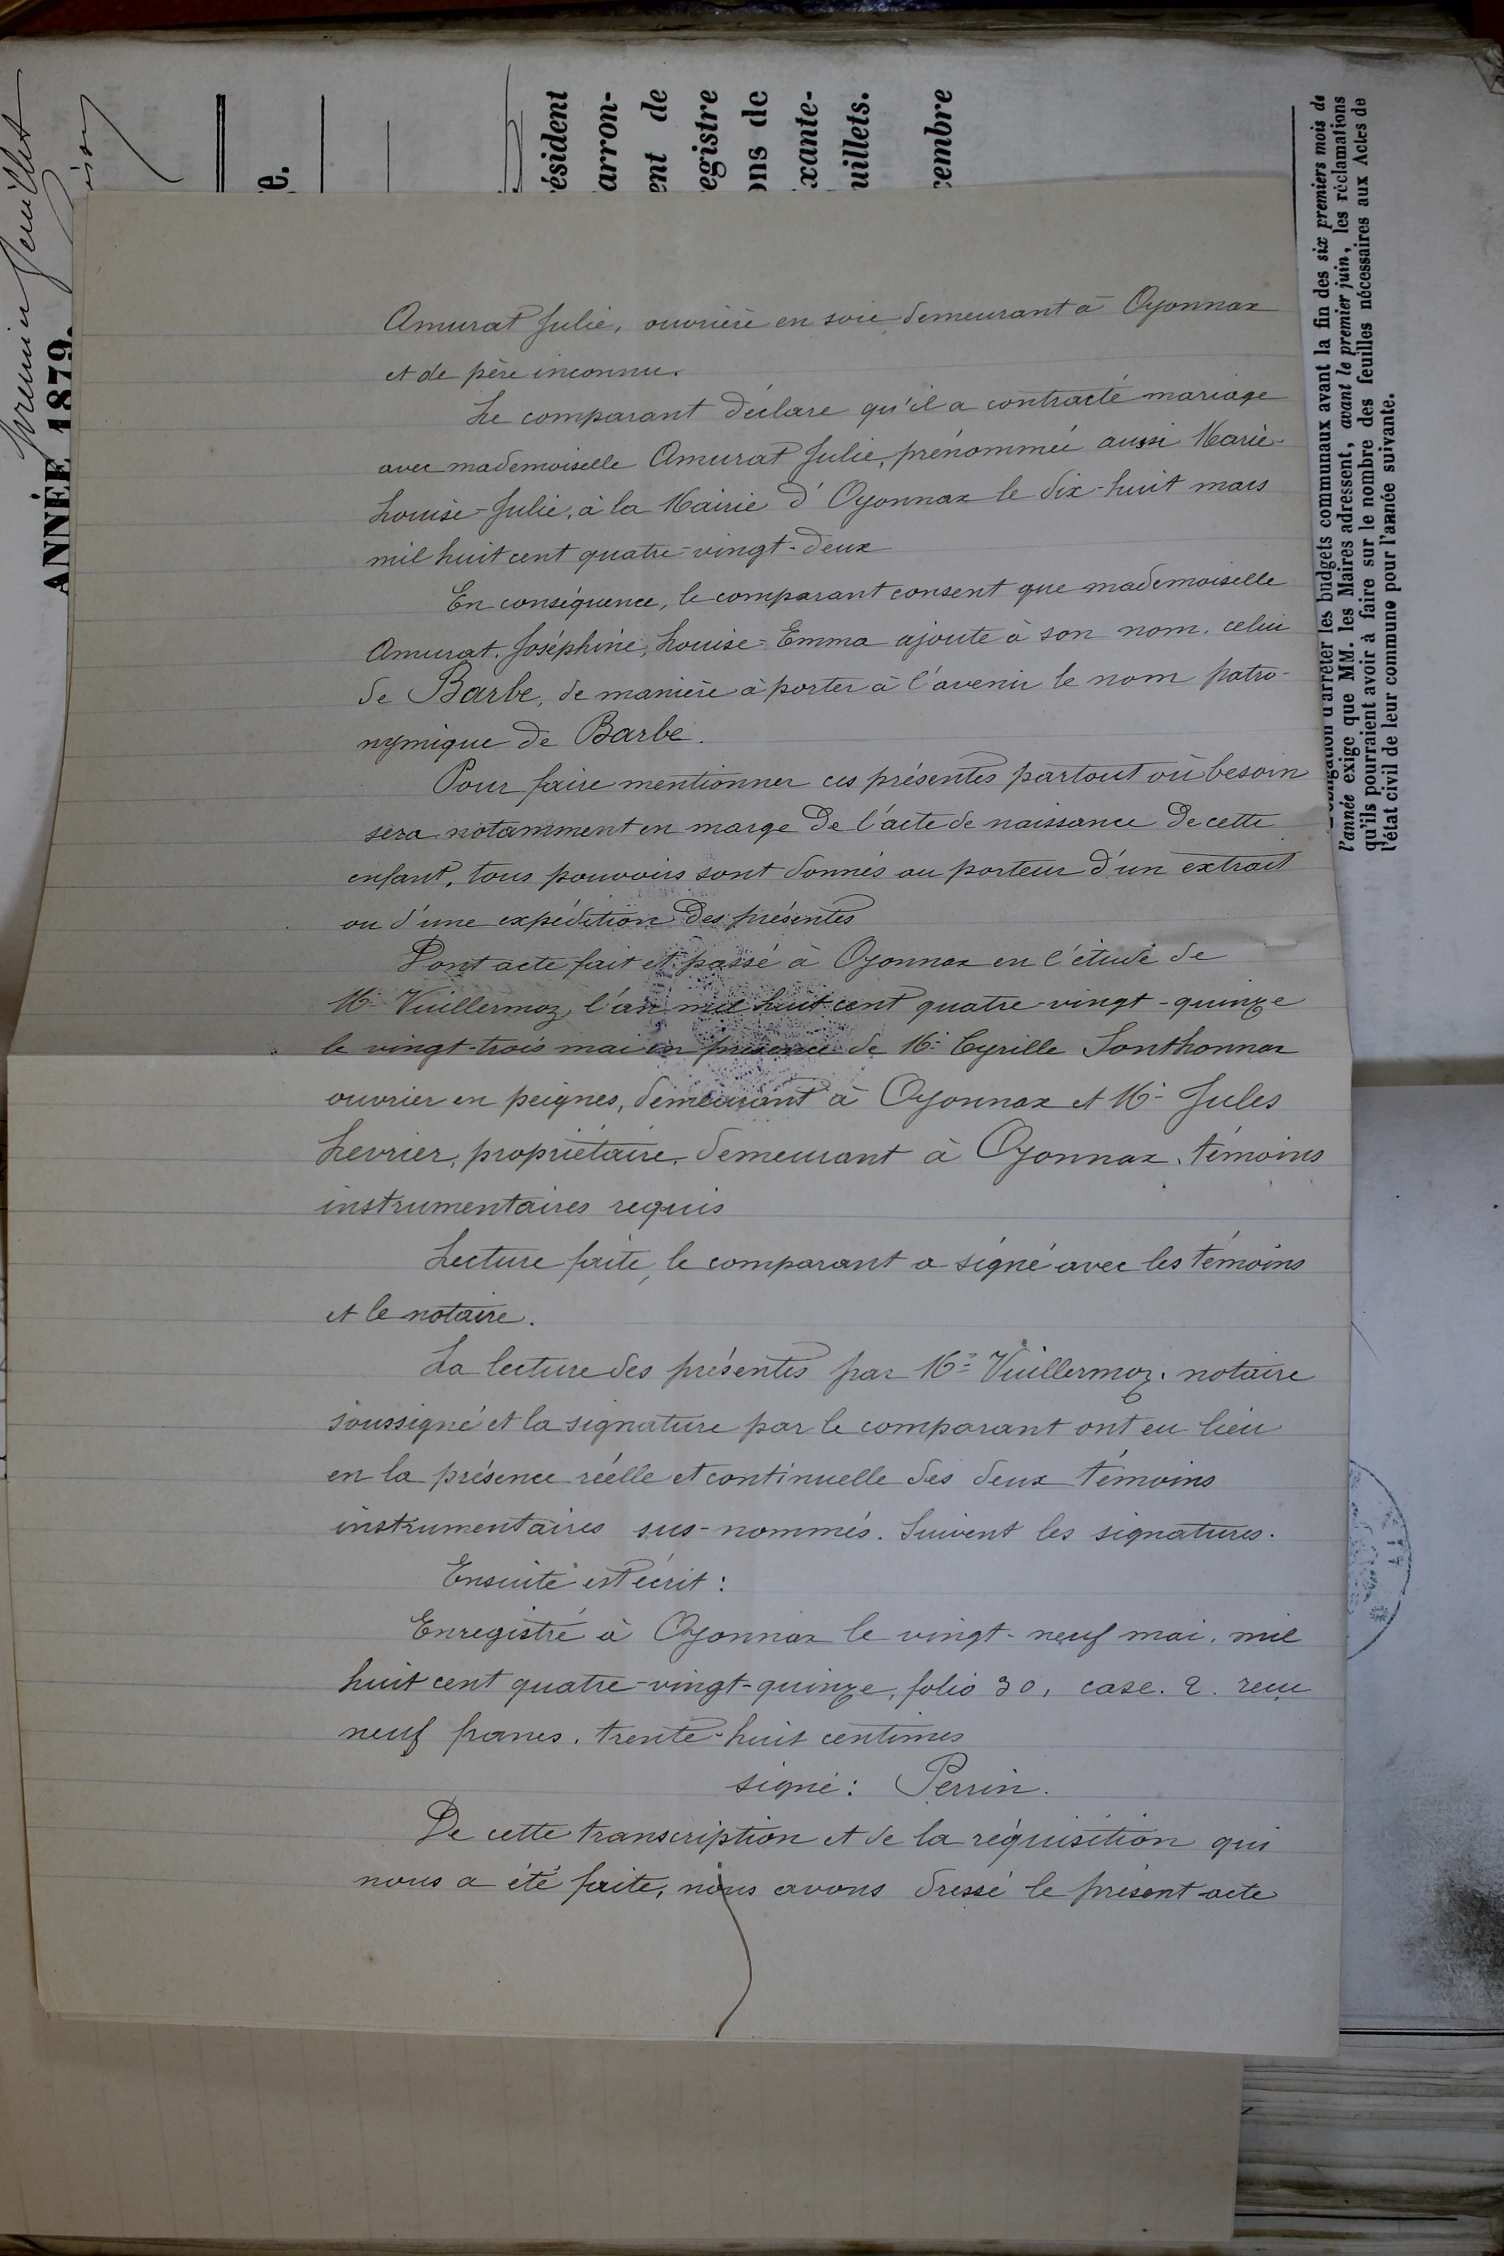 Amurat Julie, ouvrière en soie demeurant à Oyonnax
et de père inconnu.
Le comparant déclare qu'il a contracté mariage
avec mademoiselle Amurat Julie, prénommée aussi Marie-
Louise-Julie, à la Mairie d'Oyonnax le dix-huit mars
mil huit cent quatre-vingt-deux
En conséquence, le comparant consent que mademoiselle
Amurat, Joséphine, Louise-Emma ajoute à son nom, celui
de Barbe, de manière à porter à l'avenir le nom patro-
nymique de Barbe.
Pour faire mentionner ces présentes partout où besoin
sera notamment en marge de l'acte de naissance de cette
enfant, tous pouvoirs sont donnés au porteur d'un extrait
ou d'une expédition des présentes
Dont acte fait et passé à Oyonnax en l'étude de
Me Vuillermoz, l'an mil huit cent quatre-vingt-quinze
le vingt-trois mai en présence de Mr Cyrille Sonthonnax
ouvrier en peignes, demeurant à Oyonnax et Mr Jules
Levrier, propriétaire, demeurant à Oyonnax, témoins
instrumentaires requis
Lecture faite, le comparant a signé avec les témoins
et le notaire.
La lecture des présentes par Me Vuillermoz, notaire
soussigné et la signature par le comparant ont eu lieu
en la présence réelle et continuelle des deux témoins
instrumentaires sus-nommés. Suivent les signatures.
Ensuite est écrit :
Enregistré à Oyonnax le vingt-neuf mai, mil
huit cent quatre-vingt-quinze, folio 30, case. 2. reçu
neuf francs, trente-huit centimes
signé : Perrin.
De cette transcription et de la réquisition qui
nous a été faite, nous avons dressé le présent acte
premier feuillet
ANNÉE 1879.
e.
ésident
arron-
ent de
egistre
ons de
xante-
uillets.
cembre
obligation d'arrêter les budgets communaux avant la fin des six premiers mois de
l'année exige que MM. les Maires adressent, avant le premier juin, les réclamations
qu'ils pourraient avoir à faire sur le nombre des feuilles nécessaires aux Actes de
l'état civil de leur commune pour l'année suivante.